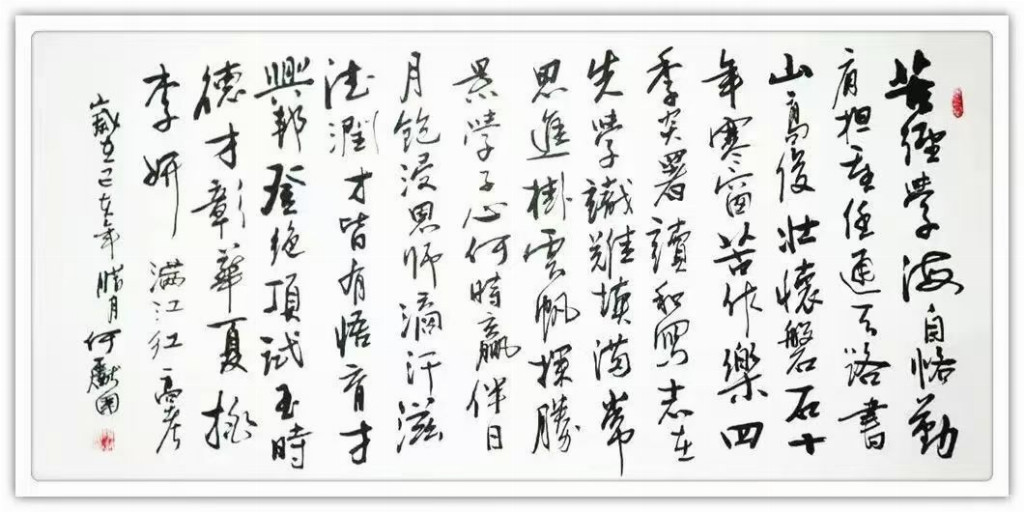 苦經學海自恪勤
肩担重任通天路書
山高俊壯懷磐石十
年寒窗苦作樂四
季炎署讀和罵志在
先學識難填滿常
思進掛雲帆擇勝
景學子心何時贏伴日
月飽浸恩师滴汗滋
法潤才皆有悟育才
興邦登绝頂試玉時
德才彰華夏授
李妍 满江红 高考
歲在己亥年腊月何獻國